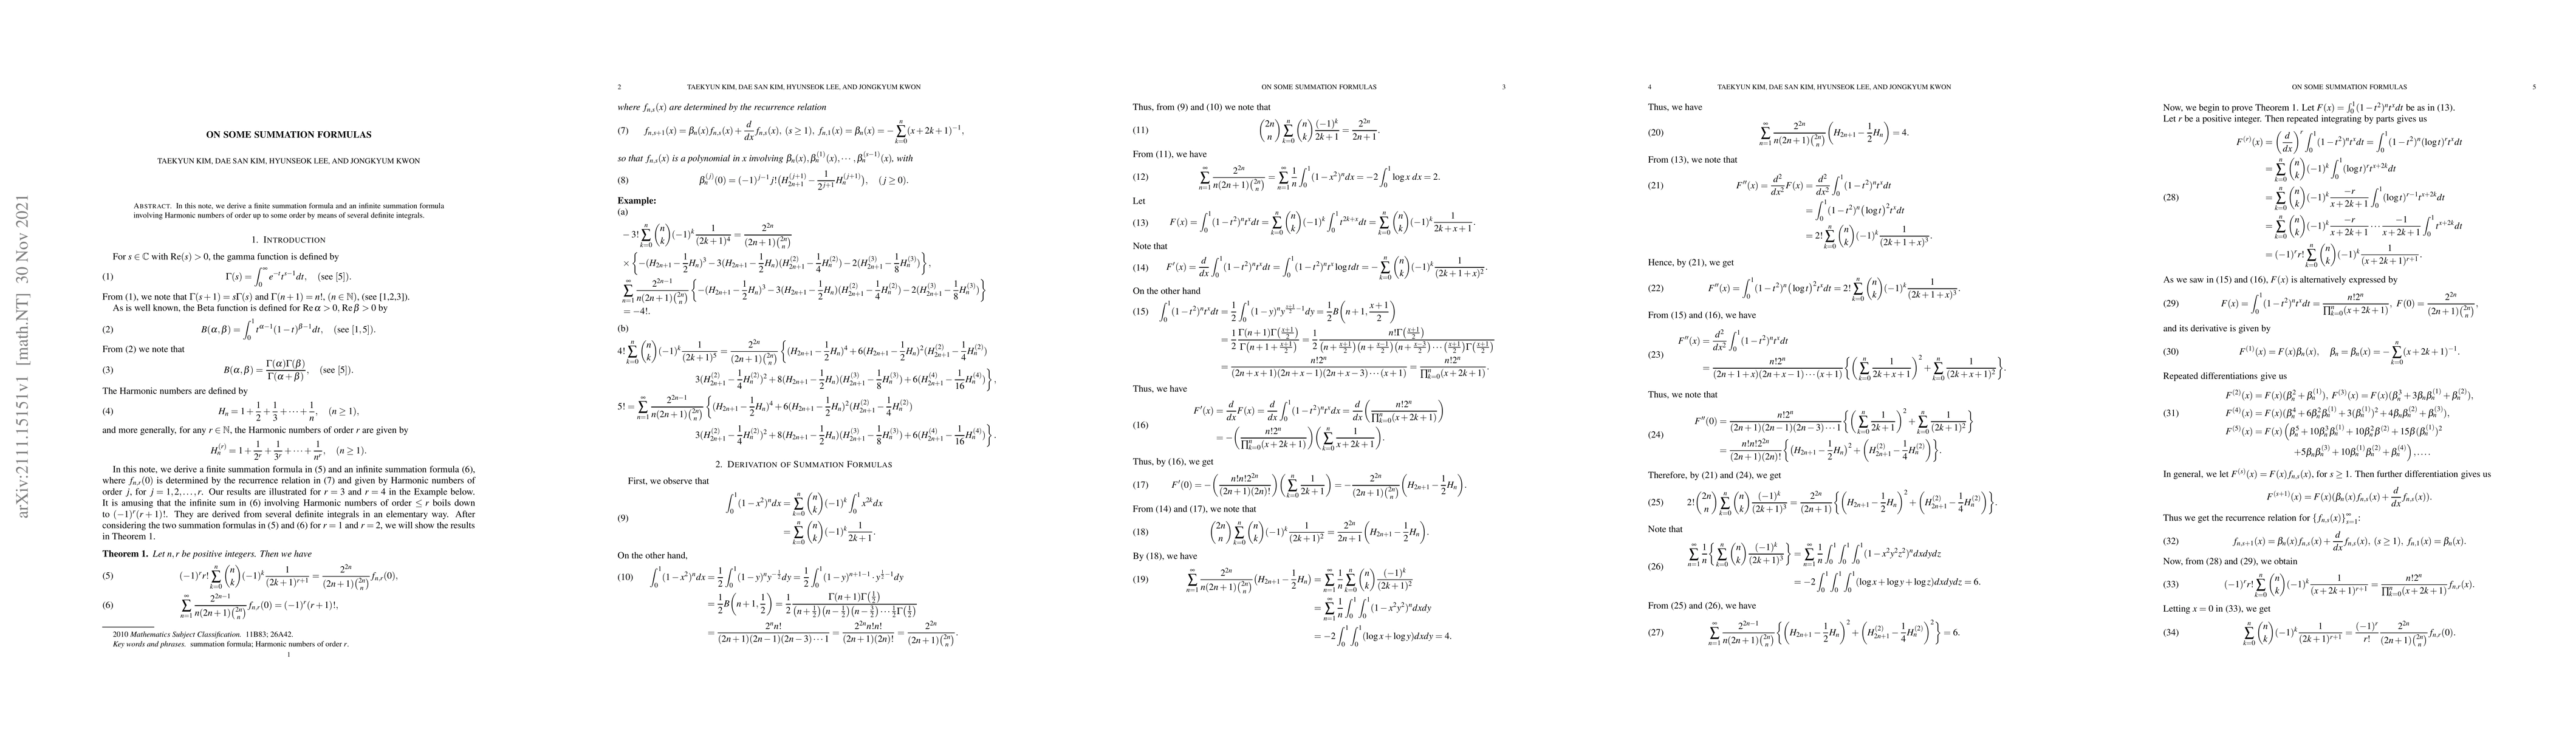 arXiv:2111.15151v1 [math.NT] 30 Nov 2021
ON SOME SUMMATION FORMULAS
TAEKYUN KIM, DAE SAN KIM, HYUNSEOK LEE, AND JONGKYUM KWON
ABSTRACT. In this note, we derive a finite summation formula and an infinite summation formula
involving Harmonic numbers of order up to some order by means of several definite integrals.
1. INTRODUCTION
For s ∈ ℂ with Re(s) > 0, the gamma function is defined by
(1) Γ(s) = ∫_0^∞ e^{-t} t^{s-1} dt, (see [5]).
From (1), we note that Γ(s+1) = sΓ(s) and Γ(n+1) = n!, (n ∈ ℕ), (see [1,2,3]).
As is well known, the Beta function is defined for Re α > 0, Re β > 0 by
(2) B(α,β) = ∫_0^1 t^{α-1}(1-t)^{β-1} dt, (see [1,5]).
From (2) we note that
(3) B(α,β) = Γ(α)Γ(β)/Γ(α+β), (see [5]).
The Harmonic numbers are defined by
(4) H_n = 1 + 1/2 + 1/3 + ··· + 1/n, (n ≥ 1),
and more generally, for any r ∈ ℕ, the Harmonic numbers of order r are given by
H_n^{(r)} = 1 + 1/2^r + 1/3^r + ··· + 1/n^r, (n ≥ 1).
In this note, we derive a finite summation formula in (5) and an infinite summation formula (6),
where f_{n,r}(0) is determined by the recurrence relation in (7) and given by Harmonic numbers of
order j, for j = 1,2,...,r. Our results are illustrated for r = 3 and r = 4 in the Example below.
It is amusing that the infinite sum in (6) involving Harmonic numbers of order ≤ r boils down
to (−1)^r(r+1)!. They are derived from several definite integrals in an elementary way. After
considering the two summation formulas in (5) and (6) for r = 1 and r = 2, we will show the results
in Theorem 1.
Theorem 1. Let n,r be positive integers. Then we have
(5) (−1)^r r! ∑_{k=0}^n \binom{n}{k} (−1)^k 1/(2k+1)^{r+1} = 2^{2n}/((2n+1)\binom{2n}{n}) f_{n,r}(0),
(6) ∑_{n=1}^∞ 2^{2n-1}/(n(2n+1)\binom{2n}{n}) f_{n,r}(0) = (−1)^r (r+1)!,
2010 Mathematics Subject Classification. 11B83; 26A42.
Key words and phrases. summation formula; Harmonic numbers of order r.
1
2 TAEKYUN KIM, DAE SAN KIM, HYUNSEOK LEE, AND JONGKYUM KWON
where f_{n,s}(x) are determined by the recurrence relation
(7) f_{n,s+1}(x) = β_n(x) f_{n,s}(x) + d/dx f_{n,s}(x), (s ≥ 1), f_{n,1}(x) = β_n(x) = −∑_{k=0}^n (x+2k+1)^{-1},
so that f_{n,s}(x) is a polynomial in x involving β_n(x), β_n^{(1)}(x), ··· , β_n^{(s-1)}(x), with
(8) β_n^{(j)}(0) = (−1)^{j-1} j! (H_{2n+1}^{(j+1)} − 1/2^{j+1} H_n^{(j+1)}), (j ≥ 0).
Example:
(a)
−3! ∑_{k=0}^n \binom{n}{k} (−1)^k 1/(2k+1)^4 = 2^{2n}/((2n+1)\binom{2n}{n})
× {−(H_{2n+1} − 1/2 H_n)^3 − 3(H_{2n+1} − 1/2 H_n)(H_{2n+1}^{(2)} − 1/4 H_n^{(2)}) − 2(H_{2n+1}^{(3)} − 1/8 H_n^{(3)})},
∑_{n=1}^∞ 2^{2n-1}/(n(2n+1)\binom{2n}{n}) {−(H_{2n+1} − 1/2 H_n)^3 − 3(H_{2n+1} − 1/2 H_n)(H_{2n+1}^{(2)} − 1/4 H_n^{(2)}) − 2(H_{2n+1}^{(3)} − 1/8 H_n^{(3)})}
= −4!.
(b)
4! ∑_{k=0}^n \binom{n}{k} (−1)^k 1/(2k+1)^5 = 2^{2n}/((2n+1)\binom{2n}{n}) {(H_{2n+1} − 1/2 H_n)^4 + 6(H_{2n+1} − 1/2 H_n)^2 (H_{2n+1}^{(2)} − 1/4 H_n^{(2)})
3(H_{2n+1}^{(2)} − 1/4 H_n^{(2)})^2 + 8(H_{2n+1} − 1/2 H_n)(H_{2n+1}^{(3)} − 1/8 H_n^{(3)}) + 6(H_{2n+1}^{(4)} − 1/16 H_n^{(4)})},
5! = ∑_{n=1}^∞ 2^{2n-1}/(n(2n+1)\binom{2n}{n}) {(H_{2n+1} − 1/2 H_n)^4 + 6(H_{2n+1} − 1/2 H_n)^2 (H_{2n+1}^{(2)} − 1/4 H_n^{(2)})
3(H_{2n+1}^{(2)} − 1/4 H_n^{(2)})^2 + 8(H_{2n+1} − 1/2 H_n)(H_{2n+1}^{(3)} − 1/8 H_n^{(3)}) + 6(H_{2n+1}^{(4)} − 1/16 H_n^{(4)})}.
2. DERIVATION OF SUMMATION FORMULAS
First, we observe that
(9) ∫_0^1 (1−x^2)^n dx = ∑_{k=0}^n \binom{n}{k} (−1)^k ∫_0^1 x^{2k} dx
= ∑_{k=0}^n \binom{n}{k} (−1)^k 1/(2k+1).
On the other hand,
(10) ∫_0^1 (1−x^2)^n dx = 1/2 ∫_0^1 (1−y)^n y^{-1/2} dy = 1/2 ∫_0^1 (1−y)^{n+1−1} · y^{1/2−1} dy
= 1/2 B(n+1, 1/2) = 1/2 Γ(n+1)Γ(1/2)/((n+1/2)(n−1/2)(n−3/2)···1/2 Γ(1/2))
= 2^n n!/((2n+1)(2n−1)(2n−3)···1) = 2^{2n} n!n!/((2n+1)(2n)!) = 2^{2n}/((2n+1)\binom{2n}{n}).
ON SOME SUMMATION FORMULAS 3
Thus, from (9) and (10) we note that
(11) \binom{2n}{n} ∑_{k=0}^n \binom{n}{k} (−1)^k/(2k+1) = 2^{2n}/(2n+1).
From (11), we have
(12) ∑_{n=1}^∞ 2^{2n}/(n(2n+1)\binom{2n}{n}) = ∑_{n=1}^∞ 1/n ∫_0^1 (1−x^2)^n dx = −2 ∫_0^1 log x dx = 2.
Let
(13) F(x) = ∫_0^1 (1−t^2)^n t^x dt = ∑_{k=0}^n \binom{n}{k} (−1)^k ∫_0^1 t^{2k+x} dt = ∑_{k=0}^n \binom{n}{k} (−1)^k 1/(2k+x+1).
Note that
(14) F′(x) = d/dx ∫_0^1 (1−t^2)^n t^x dt = ∫_0^1 (1−t^2)^n t^x log t dt = −∑_{k=0}^n \binom{n}{k} (−1)^k 1/(2k+1+x)^2.
On the other hand
(15) ∫_0^1 (1−t^2)^n t^x dt = 1/2 ∫_0^1 (1−y)^n y^{(x+1)/2 −1} dy = 1/2 B(n+1, (x+1)/2)
= 1/2 Γ(n+1)Γ((x+1)/2)/Γ(n+1+(x+1)/2) = 1/2 n!Γ((x+1)/2)/((n+(x+1)/2)(n+(x−1)/2)(n+(x−3)/2)···((x+1)/2)Γ((x+1)/2))
= n!2^n/((2n+x+1)(2n+x−1)(2n+x−3)···(x+1)) = n!2^n/∏_{k=0}^n (x+2k+1).
Thus, we have
(16) F′(x) = d/dx F(x) = d/dx ∫_0^1 (1−t^2)^n t^x dt = d/dx (n!2^n/∏_{k=0}^n (x+2k+1))
= −(n!2^n/∏_{k=0}^n (x+2k+1)) (∑_{k=0}^n 1/(x+2k+1)).
Thus, by (16), we get
(17) F′(0) = −(n!n!2^{2n}/((2n+1)(2n)!)) (∑_{k=0}^n 1/(2k+1)) = −2^{2n}/((2n+1)\binom{2n}{n}) (H_{2n+1} − 1/2 H_n).
From (14) and (17), we note that
(18) \binom{2n}{n} ∑_{k=0}^n \binom{n}{k} (−1)^k 1/(2k+1)^2 = 2^{2n}/(2n+1) (H_{2n+1} − 1/2 H_n).
By (18), we have
(19) ∑_{n=1}^∞ 2^{2n}/(n(2n+1)\binom{2n}{n}) (H_{2n+1} − 1/2 H_n) = ∑_{n=1}^∞ 1/n ∑_{k=0}^n \binom{n}{k} (−1)^k/(2k+1)^2
= ∑_{n=1}^∞ 1/n ∫_0^1 ∫_0^1 (1−x^2y^2)^n dxdy
= −2 ∫_0^1 ∫_0^1 (log x + log y) dxdy = 4.
4 TAEKYUN KIM, DAE SAN KIM, HYUNSEOK LEE, AND JONGKYUM KWON
Thus, we have
(20) ∑_{n=1}^∞ 2^{2n}/(n(2n+1)\binom{2n}{n}) (H_{2n+1} − 1/2 H_n) = 4.
From (13), we note that
(21) F″(x) = d^2/dx^2 F(x) = d^2/dx^2 ∫_0^1 (1−t^2)^n t^x dt
= ∫_0^1 (1−t^2)^n (log t)^2 t^x dt
= 2! ∑_{k=0}^n \binom{n}{k} (−1)^k 1/(2k+1+x)^3.
Hence, by (21), we get
(22) F″(x) = ∫_0^1 (1−t^2)^n (log t)^2 t^x dt = 2! ∑_{k=0}^n \binom{n}{k} (−1)^k 1/(2k+1+x)^3.
From (15) and (16), we have
(23) F″(x) = d^2/dx^2 ∫_0^1 (1−t^2)^n t^x dt
= n!2^n/((2n+1+x)(2n+x−1)···(x+1)) {(∑_{k=0}^n 1/(2k+x+1))^2 + ∑_{k=0}^n 1/(2k+x+1)^2}.
Thus, we note that
(24) F″(0) = n!2^n/((2n+1)(2n−1)(2n−3)···1) {(∑_{k=0}^n 1/(2k+1))^2 + ∑_{k=0}^n 1/(2k+1)^2}
= n!n!2^{2n}/((2n+1)(2n)!) {(H_{2n+1} − 1/2 H_n)^2 + (H_{2n+1}^{(2)} − 1/4 H_n^{(2)})}.
Therefore, by (21) and (24), we get
(25) 2! \binom{2n}{n} ∑_{k=0}^n \binom{n}{k} (−1)^k/(2k+1)^3 = 2^{2n}/(2n+1) {(H_{2n+1} − 1/2 H_n)^2 + (H_{2n+1}^{(2)} − 1/4 H_n^{(2)})}.
Note that
(26) ∑_{n=1}^∞ 1/n {∑_{k=0}^n \binom{n}{k} (−1)^k/(2k+1)^3} = ∑_{n=1}^∞ 1/n ∫_0^1 ∫_0^1 ∫_0^1 (1−x^2y^2z^2)^n dxdydz
= −2 ∫_0^1 ∫_0^1 ∫_0^1 (log x + log y + log z) dxdydz = 6.
From (25) and (26), we have
(27) ∑_{n=1}^∞ 2^{2n-1}/(n(2n+1)\binom{2n}{n}) {(H_{2n+1} − 1/2 H_n)^2 + (H_{2n+1}^{(2)} − 1/4 H_n^{(2)})^2} = 6.
ON SOME SUMMATION FORMULAS 5
Now, we begin to prove Theorem 1. Let F(x) = ∫_0^1 (1−t^2)^n t^x dt be as in (13).
Let r be a positive integer. Then repeated integrating by parts gives us
(28) F^{(r)}(x) = (d/dx)^r ∫_0^1 (1−t^2)^n t^x dt = ∫_0^1 (1−t^2)^n (log t)^r t^x dt
= ∑_{k=0}^n \binom{n}{k} (−1)^k ∫_0^1 (log t)^r t^{x+2k} dt
= ∑_{k=0}^n \binom{n}{k} (−1)^k −r/(x+2k+1) ∫_0^1 (log t)^{r−1} t^{x+2k} dt
= ∑_{k=0}^n \binom{n}{k} (−1)^k −r/(x+2k+1) ··· −1/(x+2k+1) ∫_0^1 t^{x+2k} dt
= (−1)^r r! ∑_{k=0}^n \binom{n}{k} (−1)^k 1/(x+2k+1)^{r+1}.
As we saw in (15) and (16), F(x) is alternatively expressed by
(29) F(x) = ∫_0^1 (1−t^2)^n t^x dt = n!2^n/∏_{k=0}^n (x+2k+1), F(0) = 2^{2n}/((2n+1)\binom{2n}{n}),
and its derivative is given by
(30) F^{(1)}(x) = F(x)β_n(x), β_n = β_n(x) = −∑_{k=0}^n (x+2k+1)^{-1}.
Repeated differentiations give us
(31) F^{(2)}(x) = F(x)(β_n^2 + β_n^{(1)}), F^{(3)}(x) = F(x)(β_n^3 + 3β_nβ_n^{(1)} + β_n^{(2)}),
F^{(4)}(x) = F(x)(β_n^4 + 6β_n^2β_n^{(1)} + 3(β_n^{(1)})^2 + 4β_nβ_n^{(2)} + β_n^{(3)}),
F^{(5)}(x) = F(x)(β_n^5 + 10β_n^3β_n^{(1)} + 10β_n^2β^{(2)} + 15β(β_n^{(1)})^2
+5β_nβ_n^{(3)} + 10β_n^{(1)}β_n^{(2)} + β_n^{(4)}), ....
In general, we let F^{(s)}(x) = F(x) f_{n,s}(x), for s ≥ 1. Then further differentiation gives us
F^{(s+1)}(x) = F(x)(β_n(x) f_{n,s}(x) + d/dx f_{n,s}(x)).
Thus we get the recurrence relation for {f_{n,s}(x)}_{s=1}^∞:
(32) f_{n,s+1}(x) = β_n(x) f_{n,s}(x) + d/dx f_{n,s}(x), (s ≥ 1), f_{n,1}(x) = β_n(x).
Now, from (28) and (29), we obtain
(33) (−1)^r r! ∑_{k=0}^n \binom{n}{k} (−1)^k 1/(x+2k+1)^{r+1} = n!2^n/∏_{k=0}^n (x+2k+1) f_{n,r}(x).
Letting x = 0 in (33), we get
(34) ∑_{k=0}^n \binom{n}{k} (−1)^k 1/(2k+1)^{r+1} = (−1)^r/r! 2^{2n}/((2n+1)\binom{2n}{n}) f_{n,r}(0).